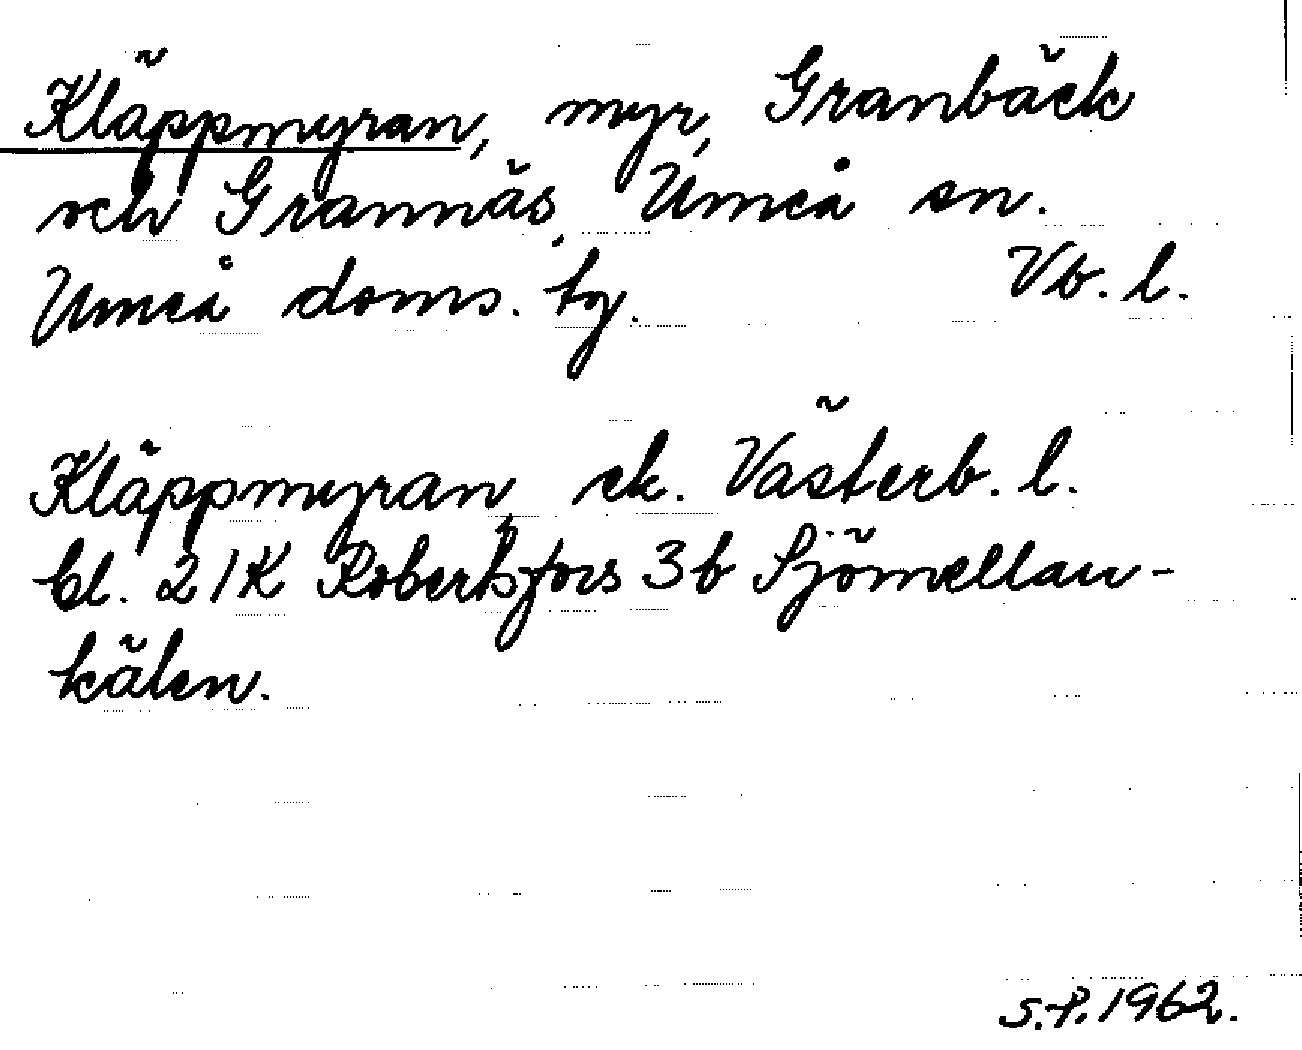 Kläppmyran, myr, Granbäck
och Grannäs, Umeå sn.
Umeå doms. hg. Vb. l.
Kläppmyran, ek. Västerb. l.
bl. 21K Robertsfors 3b Sjömellan-
kälen.
S.P. 1962.